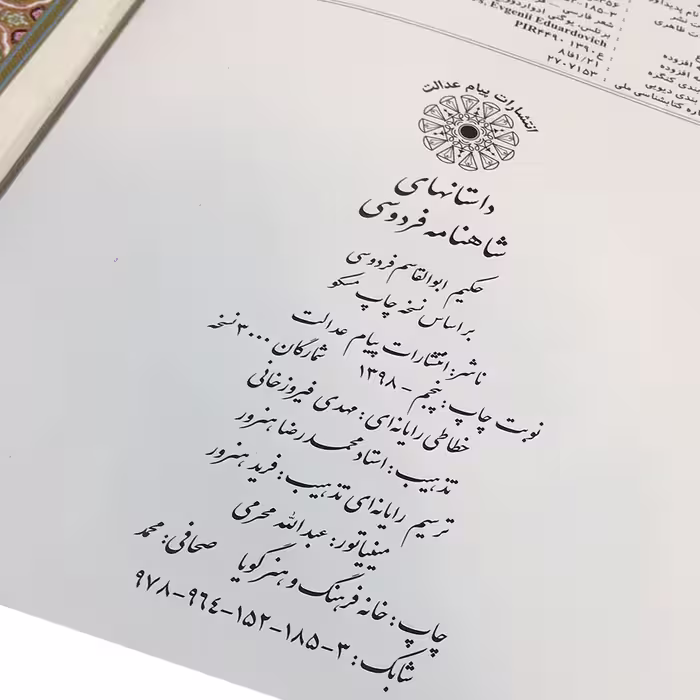 نام پدیدآور
Evgenii Eduardovich
PIR۴۴۹۰ ۱۳۹۰
۸فا۱/۲۱
۲۷۰۷۱۵۳
انتشارات پیام عدالت
داستانهای
شاهنامه فردوسی
حکیم ابوالقاسم فردوسی
بر اساس نسخه چاپ مسکو
ناشر: انتشارات پیام عدالت
نوبت چاپ: پنجم - ۱۳۹۸ شمارگان ۳۰۰۰ نسخه
خطاطی رایانه‌ای: مهدی فیروزخانی
تذهیب: استاد محمدرضا هنرور
ترسیم رایانه‌ای تذهیب: فرید هنرور
مینیاتور: عبدالله محرمی
چاپ: خانه فرهنگ و هنر گویا صحافی: محمد
شابک: ۳-۱۸۵-۱۵۲-۹۶۴-۹۷۸